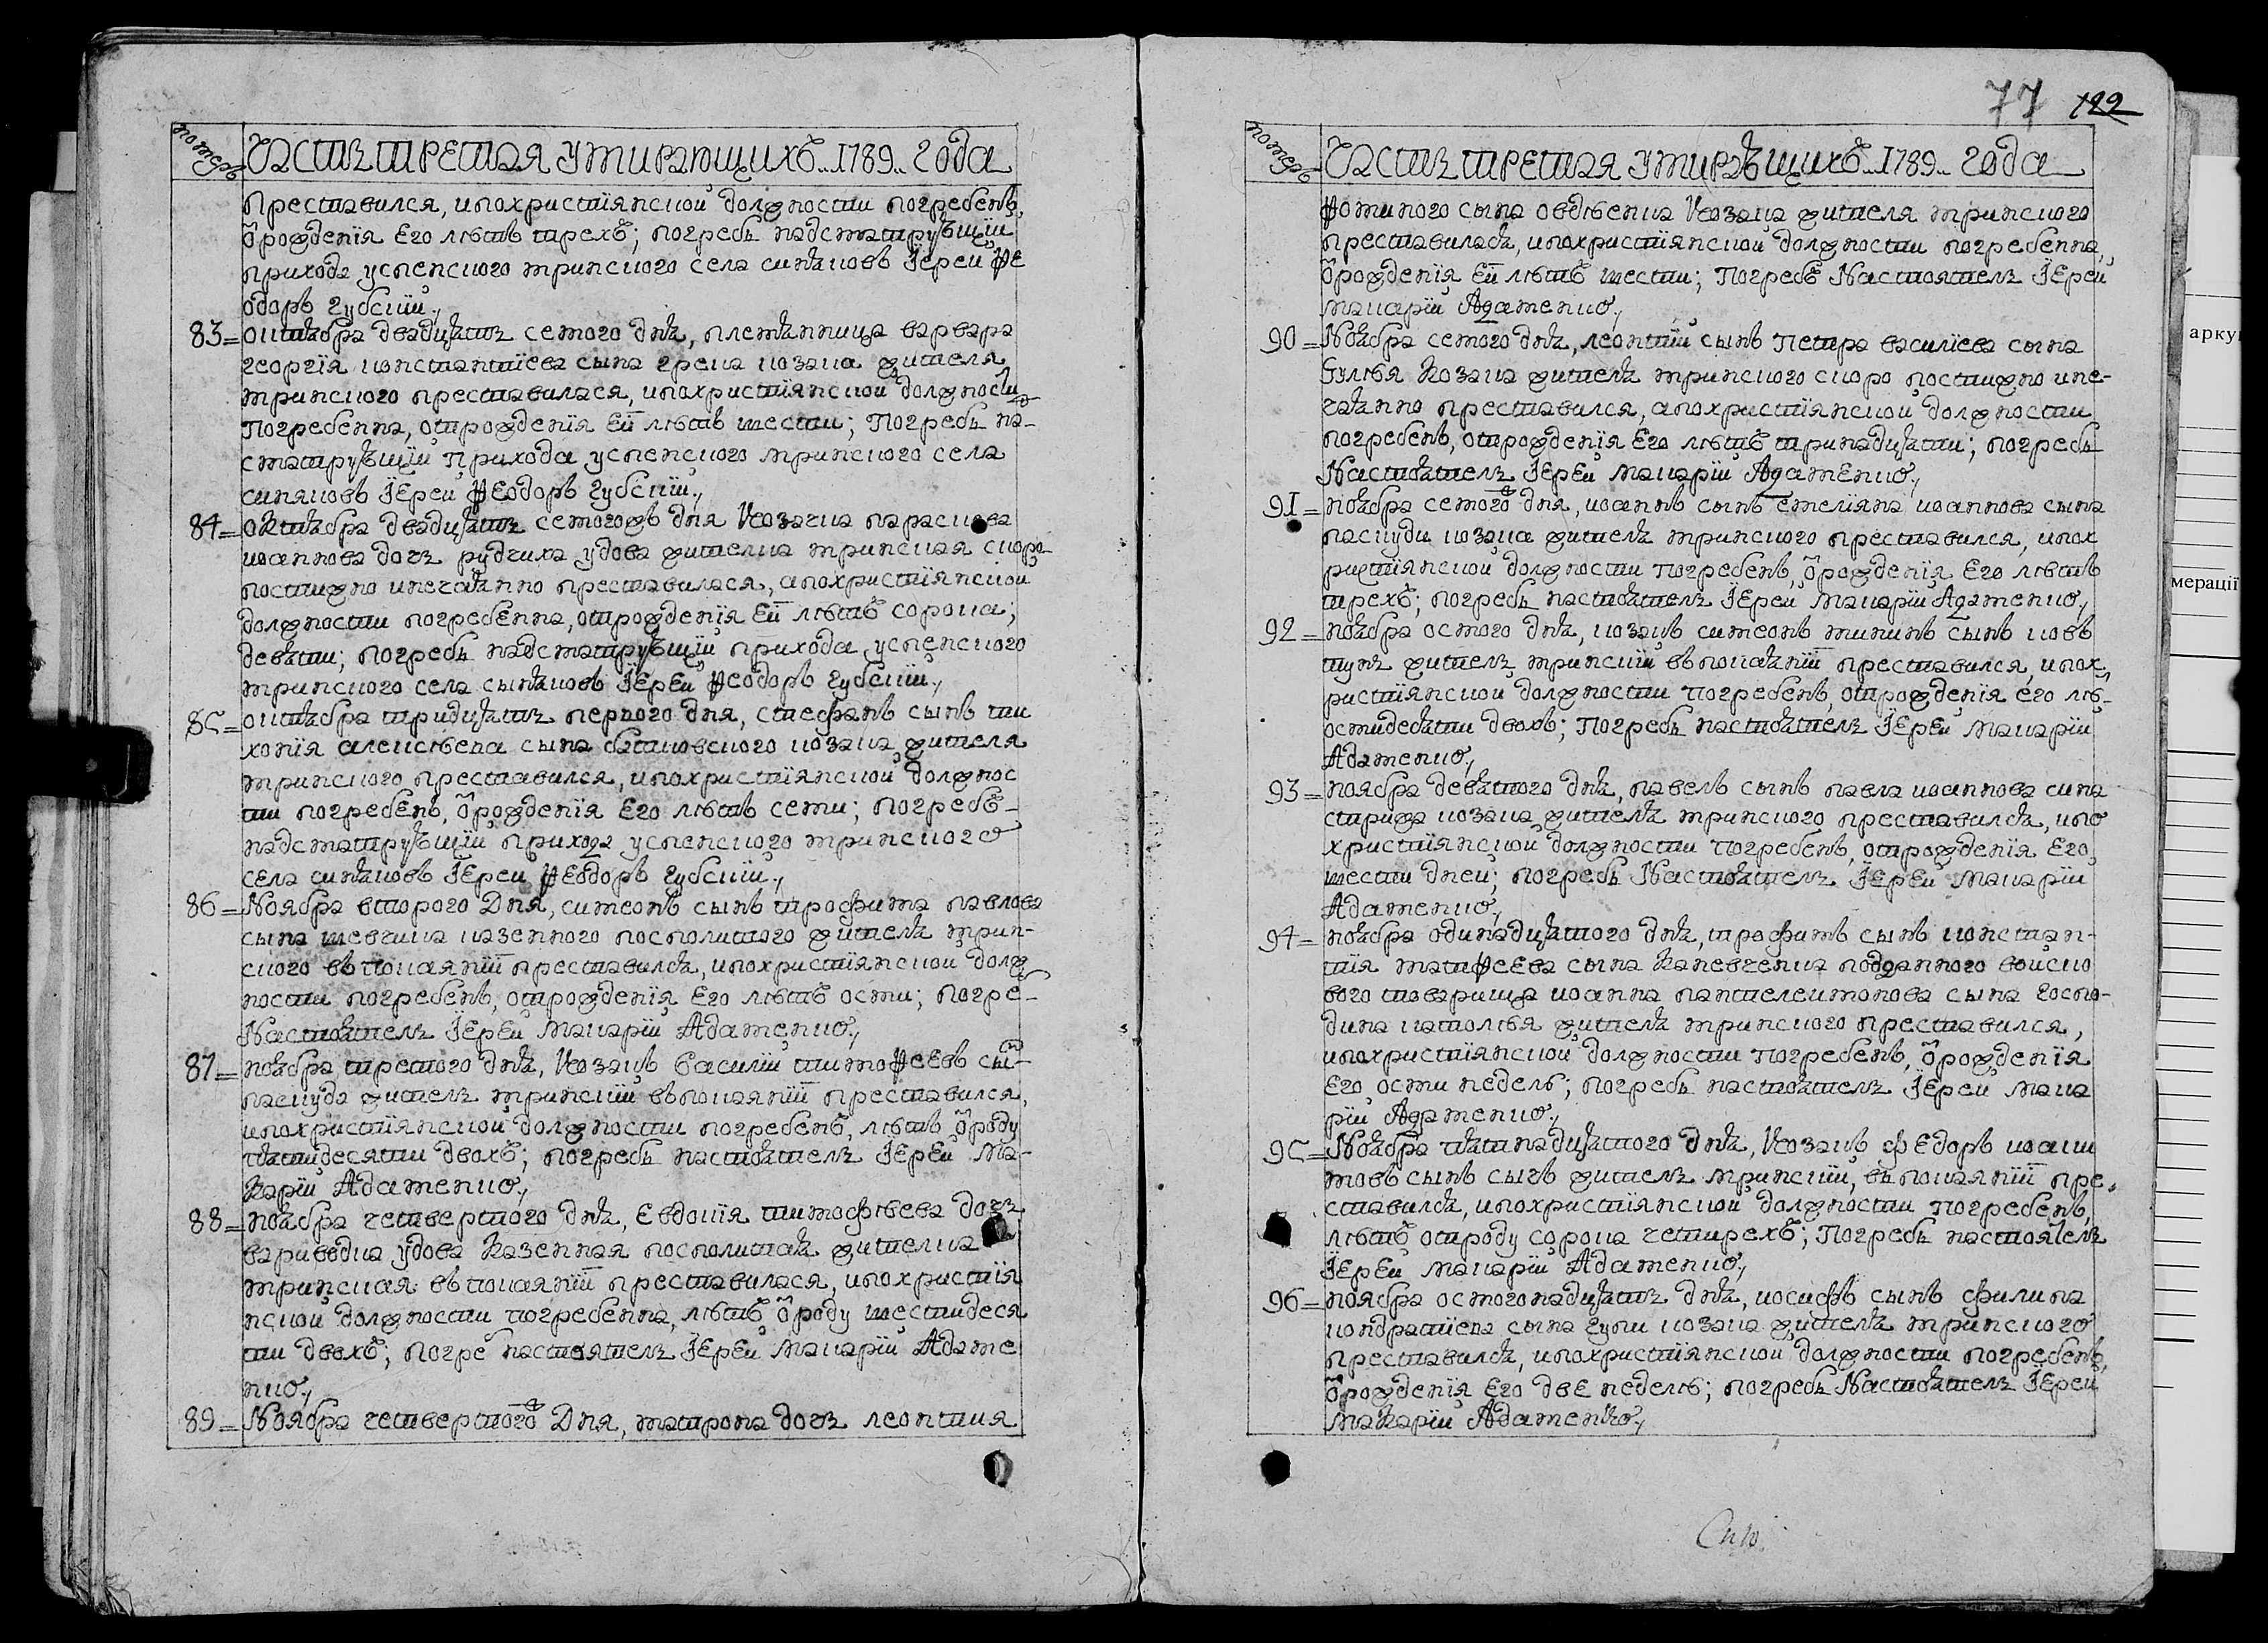 номеръ
Часть третая умирающихъ .. 1789 .. года
преставился, и по христіянской должности погребенъ,
ѿрожденія Его лѣтъ трехъ; погребъ надсматрующій
прихода успенского мринского села синяковъ Іерей Ѳе
одоръ Губскій.,
83= октября двадцять семого дня, племянница варвара
георгія константіева сына грека козака жителя
мринского преставилася, и по христіянской должности
погребенна, отрожденія Ей лѣтъ шести; погребъ на-
сматрующій прихода успенского мринского села
синяковъ Іерей Ѳеодоръ Губскій.,
84= октября двадцять семогожъ дня Козачка параскова
иоаннова дочь рудчиха удова жителка мринская скоро-
постижно и нечаянно преставилася, а по христіянской
должности погребенна, отрожденія Ей лѣтъ сорока;
девяти; погребъ надсматрующій прихода успенского
мринского села сыняковъ Іерей Ѳеодоръ Губскій.,
85= октября тридцять первого дня, стефанъ сынъ ти
хонія алексѣева сына батиовского козака жителя
мринского преставился, и по христіянской должнос
ти погребенъ, ѿрожденія Его лѣтъ семи; погребъ
надсматрующій прихода успенского мринского
села синяковъ Іерей Ѳеодоръ Губскій.,
86= Ноября второго Дня, симеонъ сынъ трофима павлова
сына шевчика казенного посполитого жителя мрин-
ского въ покаяніи преставился, и по христіянской долж
ности погребенъ, отрожденія Его лѣтъ осми; погре-
Настоятель Іерей Макарій Адаменко.,
87= ноября третого дня, Козакъ Василій тимоѲеевъ сы-
паскуда житель мринскій въ покаяніи преставился,
и по христіянской должности погребенъ, лѣтъ ѿроду
пятидесяти двохъ; погребъ настоятель Іерей Ма-
карій Адаменко.,
88= ноября четвертого дня, Евдокія тимофѣева дочь
вариводка удова казенная посполитая жителка
мринская въ покаяніи преставилася, и по христія
нской должности погребенна, лѣтъ ѿроду шестидеся
ти двохъ; погре настоятель Іерей Макарій Адаме
нко.,
89= Ноября четвертого Дня, матрона дочь леонтия
77 122
номеръ
Часть третая умирающихъ .. 1789 .. года
Ѳоминого сына овдѣенка Козака жителя мринского
преставилася, и по христіянской должности погребенна,
ѿрожденія Ей лѣтъ шести; Погребъ Настоятель Іерей
макарій Адаменко.,
90= Ноября семого дня, леонтій сынъ Петра василіева сына
Козака жителя мринского скоро постижно и не-
чаянно преставился, а по христіянской должности
погребенъ, отрожденія Его лѣтъ тринадцяти; погребъ
Настоятель Іерей макарій Адаменко.,
91= ноября семого дня, иоаннъ сынъ емеліяна иоаннова сына
паскуди козака жителя мринского преставился, и по х
ристіянской должности погребенъ, ѿрожденія Его лѣтъ
трехъ; погребъ настоятель Іерей макарій Адаменко.,
92= ноября осмого дня, козакъ симеонъ мининъ сынъ ковъ
тунъ житель мринскій въ покаяніи преставился, и по х
ристіянской должности погребенъ, отрожденія его лѣ-
осмидесяти двохъ; Погребъ настоятель Іерей макарій
Адаменко.,
93= ноября девятого дня, павелъ сынъ павла иоаннова сина
стрижа козака жителя мринского преставился, и по
христіянской должности погребенъ, отрожденія Его
шести дней; погребъ Настоятель Іерей макарій
Адаменко.,
94= ноября одинадцятого дня, трофимъ сынъ констан-
тія матѲеева сына каневченка подданного воиско
вого товарища иоанна пантелеимонова сына госпо-
дина натолѣя жителя мринского преставился,
и по христіянской должности погребенъ, ѿрожденія
Его осми недель; погребъ настоятель Іерей мака
рій Адаменко.,
95= Ноября пятнадцятого дня, Козакъ федоръ иоаки
мовъ сынъ сычъ житель мринскій, въ покаяніи пре-
ставился, и по христіянской должности погребенъ,
лѣтъ отроду сорока четирехъ; Погребъ настоятель
Іерей макарій Адаменко.,
96= ноября осмогонадцять дня, иосифъ сынъ филипа
кондратиева сына гупи козака жителя мринского
преставился, и по христіянской должности погребенъ,
ѿрожденія Его две неделѣ; погребъ Настоятель Іерей
макарій Адаменко.,
арку
мерації